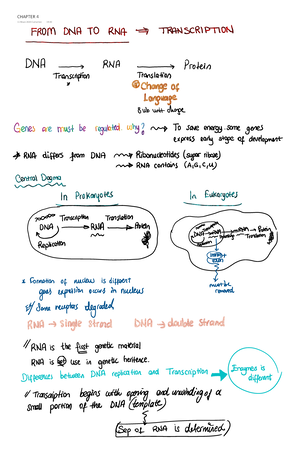 CHAPTER 6
FROM DNA TO RNA → TRANSCRIPTION
DNA → RNA → Protein
Transcription Translation
Change of
Language
Genes are must be regulated why? → To save energy some genes
express early stage of development
RNA differs from DNA → Ribonucleotides (sugar ribose)
→ RNA contains (A,G,C,U)
Central Dogma
In Prokaryotes In Eukaryotes
Transcription Translation
DNA → RNA → Protein
Replication
DNA
Protein
Translation
must be
removed
* Formation of nucleus is different
gene expression occurs in nucleus
Some introns degraded
RNA → Single Strand DNA → double Strand
RNA is the first genetic material
RNA is not use in genetic heritence.
Differences between DNA replication and Transcription → Enzymes is
different
Transcription begins with opening and unwinding of a
small portion of the DNA (template)
Seq of RNA is determined